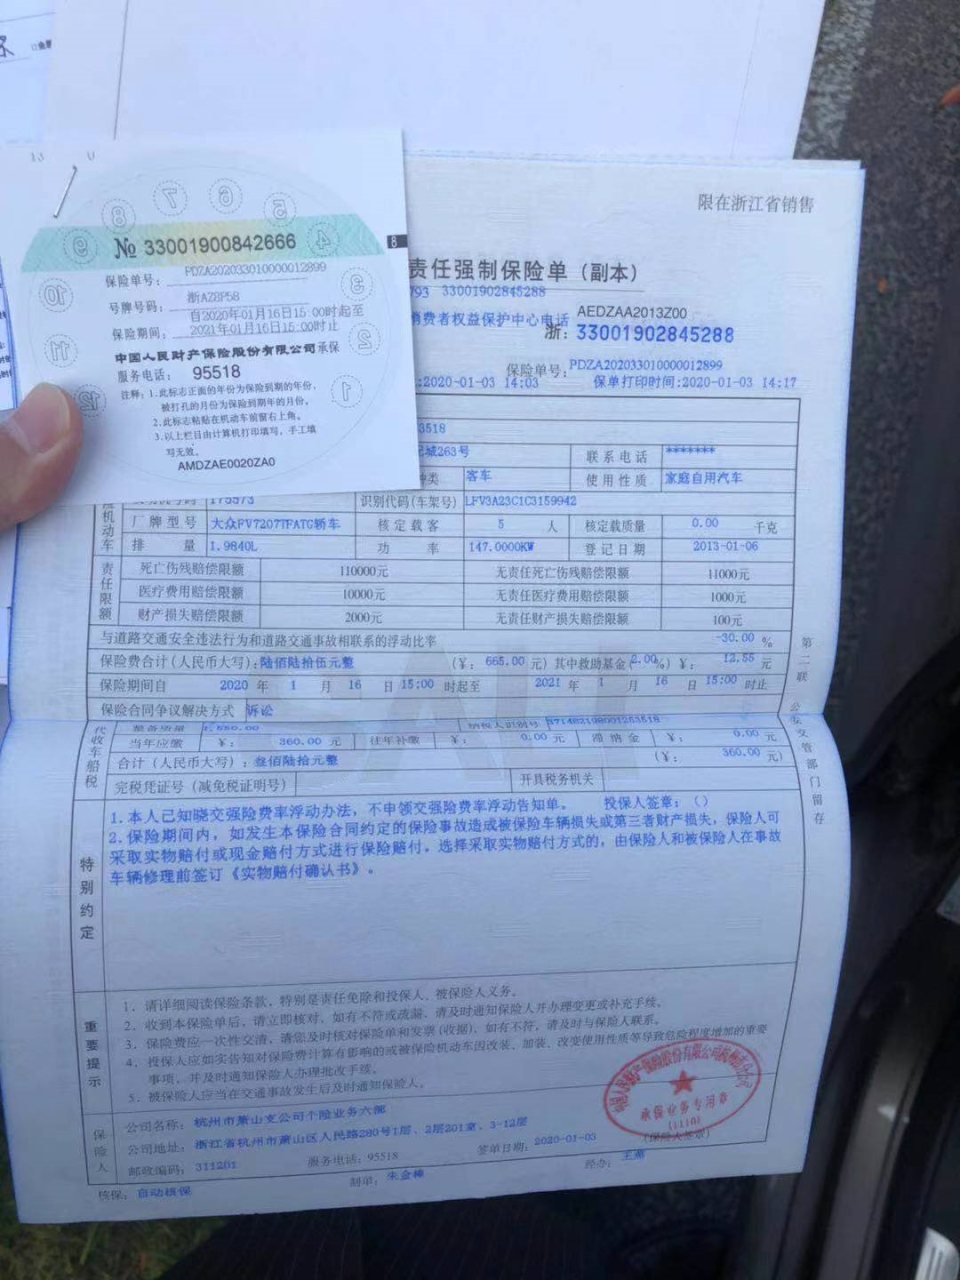 限在浙江省销售
№ 33001900842666
保险单号： PDZA202033010000012899
号牌号码： 浙AZ8P58
保险期间： 自2020年01月16日15:00时起至
2021年01月16日15:00时止
中国人民财产保险股份有限公司承保
服务电话： 95518
注释：1.此标志正面的年份为保险到期的年份，
被打孔的月份为保险到期年的月份。
2.此标志粘贴在机动车前窗右上角。
3.以上栏目由计算机打印填写，手工填
写无效。
AMDZAE0020ZA0
责任强制保险单（副本）
793 33001902845288
消费者权益保护中心电话
AEDZAA2013Z00
浙：33001902845288
保险单号：PDZA202033010000012899
:2020-01-03 14:03 保单打印时间:2020-01-03 14:17
3518
城263号 联系电话 *******
种类 客车 使用性质 家庭自用汽车
175973 识别代码(车架号) LFV3A23C1C3159942
机动车
厂牌型号 大众FV7207TFATG轿车 核定载客 5 人 核定载质量 0.00 千克
排量 1.9840L 功率 147.0000KW 登记日期 2013-01-06
责任限额
死亡伤残赔偿限额 110000元 无责任死亡伤残赔偿限额 11000元
医疗费用赔偿限额 10000元 无责任医疗费用赔偿限额 1000元
财产损失赔偿限额 2000元 无责任财产损失赔偿限额 100元
与道路交通安全违法行为和道路交通事故相联系的浮动比率 -30.00 %
保险费合计(人民币大写)：陆佰陆拾伍元整 (￥: 665.00 元)其中救助基金(2.00%)￥: 12.55 元
保险期间自 2020 年 1 月 16 日 15:00 时起至 2021 年 1 月 16 日 15:00 时止
保险合同争议解决方式 诉讼
代收车船税
整备质量 纳税人识别号
当年应缴 ￥: 360.00 元 往年补缴 ￥: 0.00 元 滞纳金 ￥: 0.00 元
合计(人民币大写)：叁佰陆拾元整 (￥: 360.00 元)
完税凭证号(减免税证明号) 开具税务机关
第二联
公安交管部门留存
特别约定
1.本人已知晓交强险费率浮动办法，不申领交强险费率浮动告知单。 投保人签章：()
2.保险期间内，如发生本保险合同约定的保险事故造成被保险车辆损失或第三者财产损失，保险人可
采取实物赔付或现金赔付方式进行保险赔付，选择采取实物赔付方式的，由保险人和被保险人在事故
车辆修理前签订《实物赔付确认书》。
重要提示
1. 请详细阅读保险条款，特别是责任免除和投保人、被保险人义务。
2. 收到本保险单后，请立即核对，如有不符或疏漏，请及时通知保险人并办理变更或补充手续。
3. 保险费应一次性交清，请您及时核对保险单和发票(收据)，如有不符，请及时与保险人联系。
4. 投保人应如实告知对保险费计算有影响的或被保险机动车因改装、加装、改变使用性质等导致危险程度增加的重要
事项，并及时通知保险人办理批改手续。
5. 被保险人应当在交通事故发生后及时通知保险人。
保险人
公司名称：杭州市萧山支公司个险业务六部
公司地址：浙江省杭州市萧山区人民路280号1层、2层201室、3-12层
邮政编码：311201 服务电话：95518 签单日期：2020-01-03 (保险人签章)
承保业务专用章
(1110)
核保：自动核保 制单：朱金棒 经办：